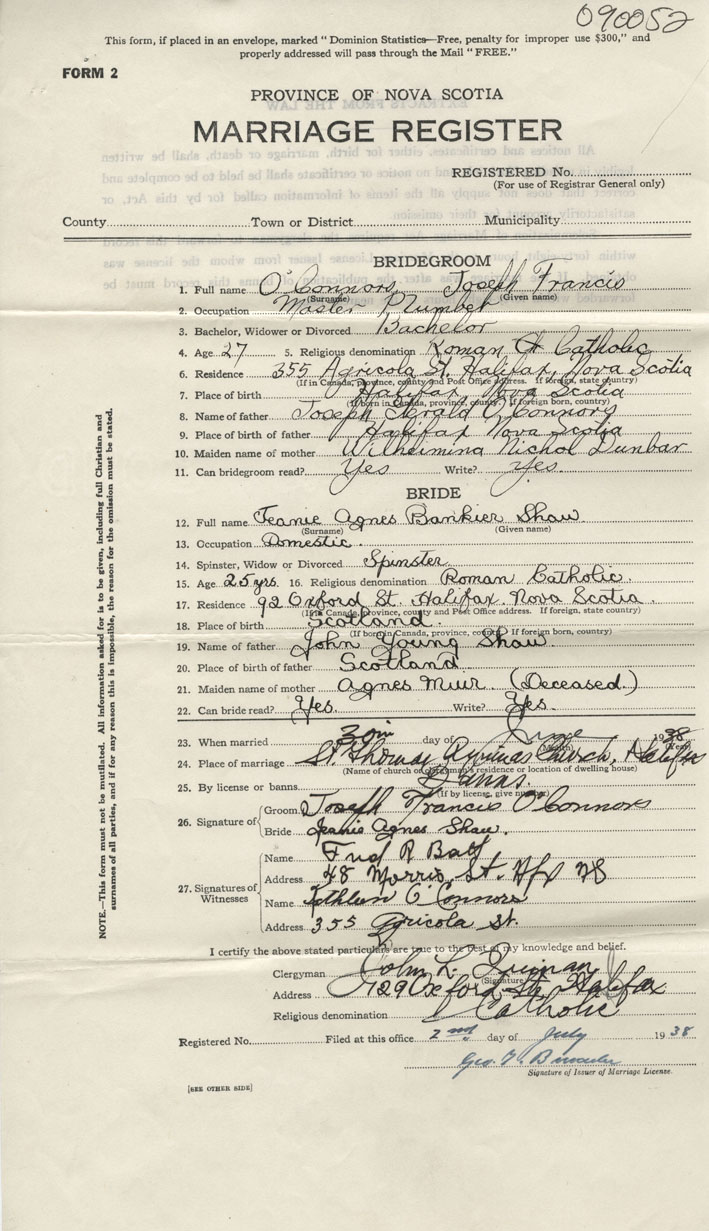 090052
This form, if placed in an envelope, marked "Dominion Statistics—Free, penalty for improper use $300," and
properly addressed will pass through the Mail "FREE."
FORM 2
PROVINCE OF NOVA SCOTIA
MARRIAGE REGISTER
REGISTERED No.
(For use of Registrar General only)
County Town or District Municipality
BRIDEGROOM
1. Full name O'Connors Joseph Francis
(Surname) (Given name)
2. Occupation Master Plumber
3. Bachelor, Widower or Divorced Bachelor
4. Age 27 5. Religious denomination Roman Catholic
6. Residence 355 Agricola St. Halifax, Nova Scotia
(If in Canada, province, county and Post Office address. If foreign, state country)
7. Place of birth Halifax Nova Scotia
(If born in Canada, province, county. If foreign born, country)
8. Name of father Joseph Gerald O'Connors
9. Place of birth of father Halifax Nova Scotia
10. Maiden name of mother Wilhelmina Nichol Dunbar
11. Can bridegroom read? Yes Write? Yes.
BRIDE
12. Full name Jeanie Agnes Bankier Shaw
(Surname) (Given name)
13. Occupation Domestic.
14. Spinster, Widow or Divorced Spinster
15. Age 25 yrs. 16. Religious denomination Roman Catholic.
17. Residence 92 Oxford St. Halifax. Nova Scotia.
(If in Canada, province, county and Post Office address. If foreign, state country)
18. Place of birth Scotland.
(If born in Canada, province, county. If foreign born, country)
19. Name of father John Young Shaw
20. Place of birth of father Scotland
21. Maiden name of mother Agnes Muir (Deceased.)
22. Can bride read? Yes. Write? Yes.
23. When married day of June 1938
(Month) (Year)
24. Place of marriage St. Thomas Aquinas Church, Halifax
(Name of church or clergyman's residence or location of dwelling house)
25. By license or banns Banns.
(If by license, give number)
26. Signature of Groom Joseph Francis O'Connors
Bride Jeanie Agnes Shaw.
27. Signatures of Witnesses
Name Fred R
Address 48 Morris St. Hfx NS
Name Kathleen O'Connors
Address 355 Agricola St.
I certify the above stated particulars are true to the best of my knowledge and belief.
Clergyman
(Signature)
Address Oxford St. Halifax
Religious denomination Catholic
Registered No. Filed at this office 2nd day of July 1938
Geo.
Signature of Issuer of Marriage License.
[SEE OTHER SIDE]
NOTE.—This form must not be mutilated. All information asked for is to be given, including full Christian and
surnames of all parties, and if for any reason this is impossible, the reason for the omission must be stated.